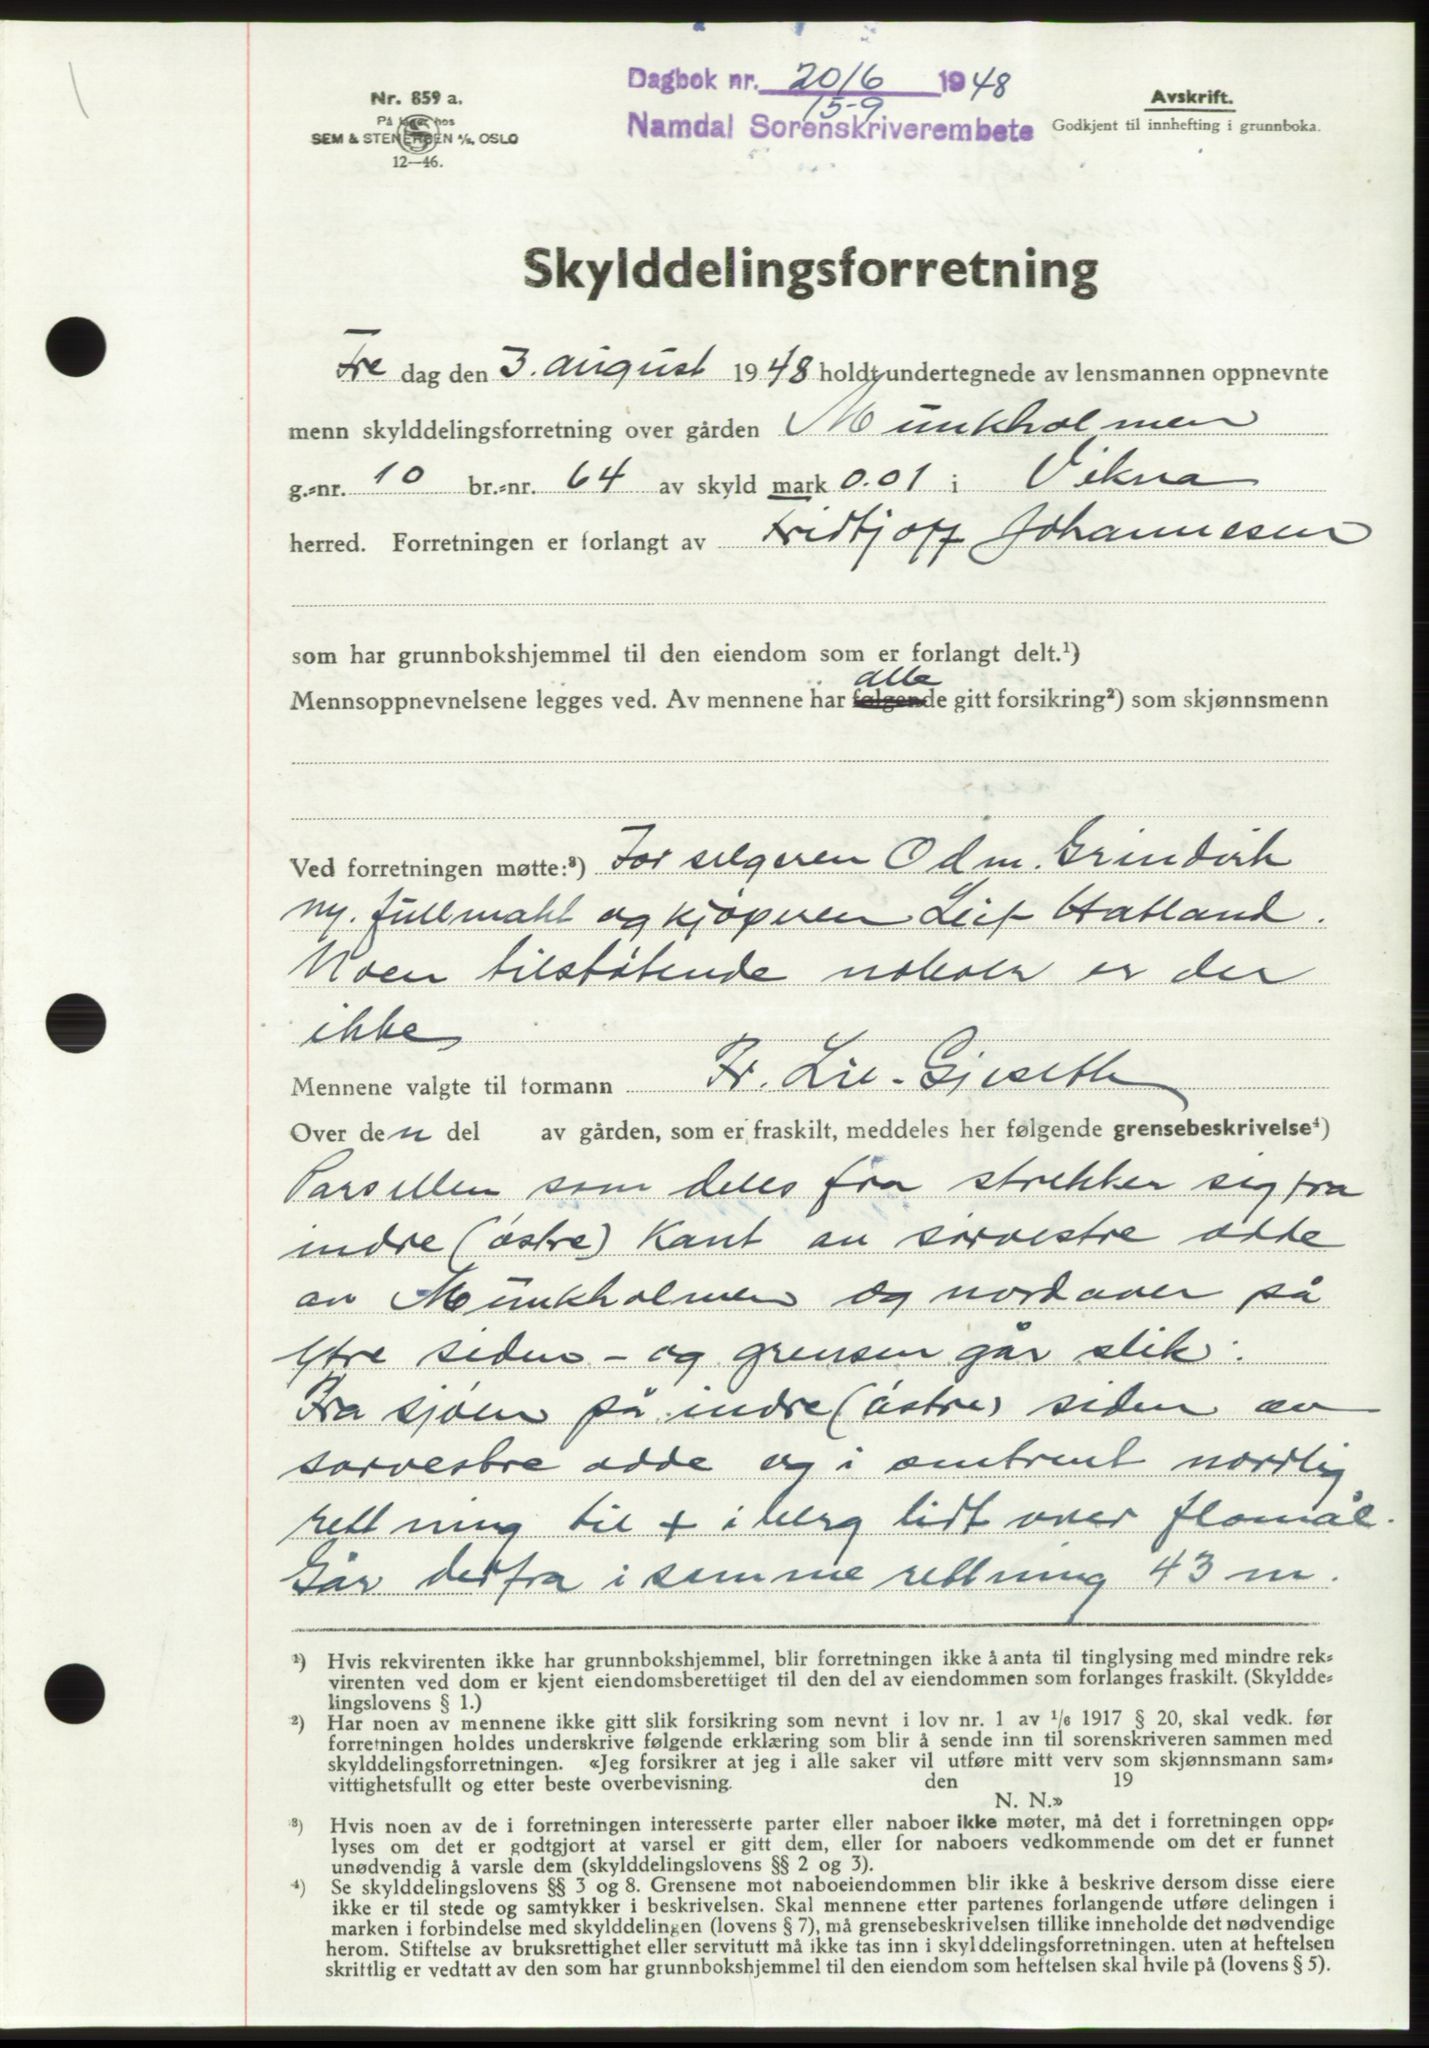 Nr. 859 a.
På lager hos
SEM & STENERSEN A/S, OSLO
12—46.
Dagbok nr. 2016 1948
15-9
Namdal Sorenskriverembete
Avskrift.
Godkjent til innhefting i grunnboka.
Skylddelingsforretning
Fre dag den 3. august 1948 holdt undertegnede av lensmannen oppnevnte
menn skylddelingsforretning over gården Munkholmen
g.-nr. 10 br.-nr. 64 av skyld mark 0.01 i Vikna
herred. Forretningen er forlangt av Fridtjoff Johannesen
som har grunnbokshjemmel til den eiendom som er forlangt delt.¹)
alle
Mennsoppnevnelsene legges ved. Av mennene har følgende gitt forsikring²) som skjønnsmenn
Ved forretningen møtte:³) For selgeren Odm. Grindvik
flg. fullmakt og kjøperen Leif Hatland.
Noen tilstøtende naboer er der
ikke
Mennene valgte til formann Fr. Lie-Gjeseth
Over den del av gården, som er fraskilt, meddeles her følgende grensebeskrivelse⁴)
Parsellen som deles fra strekker sig fra
indre (østre) kant av sørvestre odde
av Munkholmen og nordover på
ytre siden - og grensen går slik:
Fra sjøen på indre (østre) siden av
sørvestre odde og i omtrent nordlig
rettning til + i berg lidt over flomål.
Går derfra i samme rettning 43 m.
¹) Hvis rekvirenten ikke har grunnbokshjemmel, blir forretningen ikke å anta til tinglysing med mindre rek-
virenten ved dom er kjent eiendomsberettiget til den del av eiendommen som forlanges fraskilt. (Skyldde-
lingslovens § 1.)
²) Har noen av mennene ikke gitt slik forsikring som nevnt i lov nr. 1 av ¹/6 1917 § 20, skal vedk. før
forretningen holdes underskrive følgende erklæring som blir å sende inn til sorenskriveren sammen med
skylddelingsforretningen. «Jeg forsikrer at jeg i alle saker vil utføre mitt verv som skjønnsmann sam-
vittighetsfullt og etter beste overbevisning. den 19
N. N.»
³) Hvis noen av de i forretningen interesserte parter eller naboer ikke møter, må det i forretningen opp-
lyses om det er godtgjort at varsel er gitt dem, eller for naboers vedkommende om det er funnet
unødvendig å varsle dem (skylddelingslovens §§ 2 og 3).
⁴) Se skylddelingslovens §§ 3 og 8. Grensene mot naboeiendommen blir ikke å beskrive dersom disse eiere
ikke er til stede og samtykker i beskrivelsen. Skal mennene etter partenes forlangende utføre delingen i
marken i forbindelse med skylddelingen (lovens § 7), må grensebeskrivelsen tillike inneholde det nødvendige
herom. Stiftelse av bruksrettighet eller servitutt må ikke tas inn i skylddelingsforretningen. uten at heftelsen
skriftlig er vedtatt av den som har grunnbokshjemmel til den eiendom som heftelsen skal hvile på (lovens § 5).